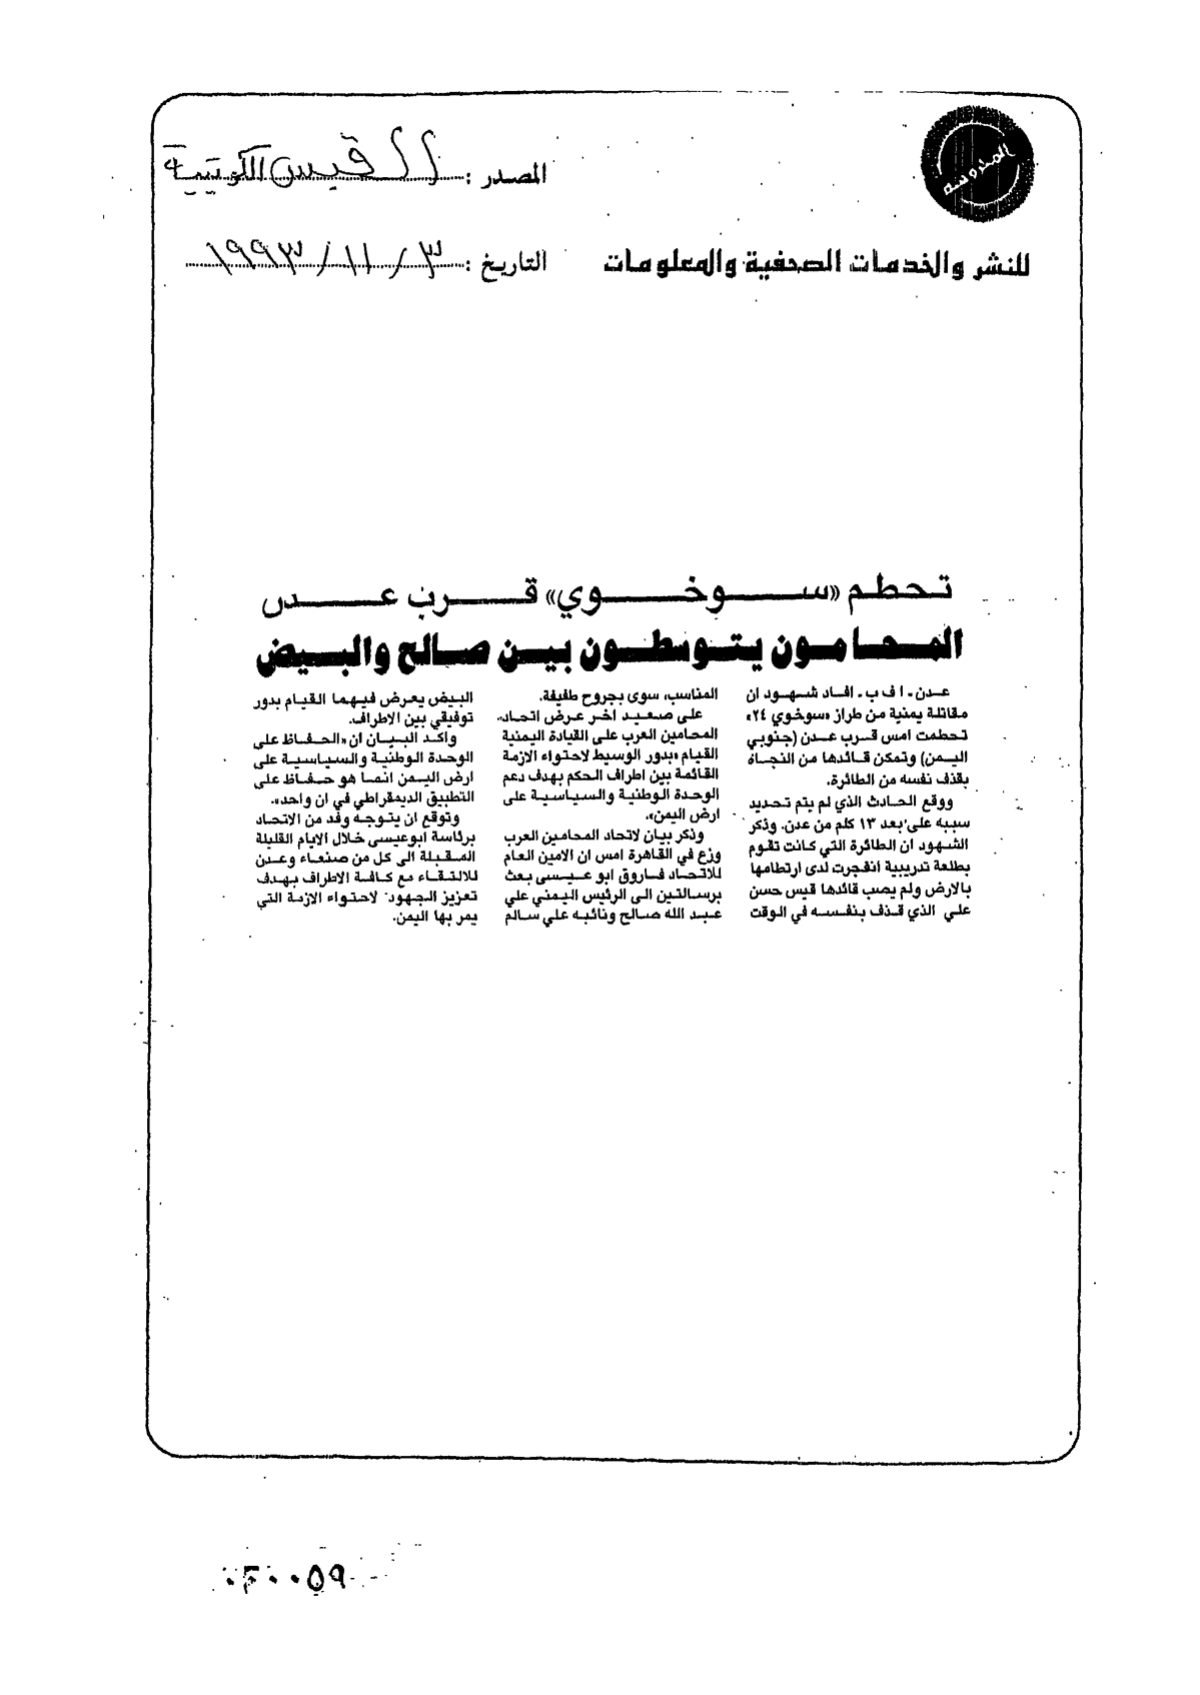 المحروسة
المصدر : القبس الكويتية
للنشر والخدمات الصحفية والمعلومات
التاريخ : ٣ / ١١ / ١٩٩٣
تحطم «سوخوي» قرب عدن
المحامون يتوسطون بين صالح والبيض
عدن ـ ا ف ب ـ افاد شهود ان
مقاتلة يمنية من طراز «سوخوي ٢٤»
تحطمت امس قرب عدن (جنوبي
اليمن) وتمكن قائدها من النجاة
بقذف نفسه من الطائرة.
ووقع الحادث الذي لم يتم تحديد
سببه على بعد ١٣ كلم من عدن. وذكر
الشهود ان الطائرة التي كانت تقوم
بطلعة تدريبية انفجرت لدى ارتطامها
بالارض ولم يصب قائدها قيس حسن
علي الذي قذف بنفسه في الوقت
المناسب، سوى بجروح طفيفة.
على صعيد اخر عرض اتحاد
المحامين العرب على القيادة اليمنية
القيام «بدور الوسيط لاحتواء الازمة
القائمة بين اطراف الحكم بهدف دعم
الوحدة الوطنية والسياسية على
ارض اليمن».
وذكر بيان لاتحاد المحامين العرب
وزع في القاهرة امس ان الامين العام
للاتحاد فاروق ابو عيسى بعث
برسالتين الى الرئيس اليمني علي
عبد الله صالح ونائبه علي سالم
البيض يعرض فيهما القيام بدور
توفيقي بين الاطراف.
واكد البيان ان «الحفاظ على
الوحدة الوطنية والسياسية على
ارض اليمن انما هو حفاظ على
التطبيق الديمقراطي في ان واحد».
وتوقع ان يتوجه وفد من الاتحاد
برئاسة ابوعيسى خلال الايام القليلة
المقبلة الى كل من صنعاء وعدن
للالتقاء مع كافة الاطراف بهدف
تعزيز الجهود لاحتواء الازمة التي
يمر بها اليمن.